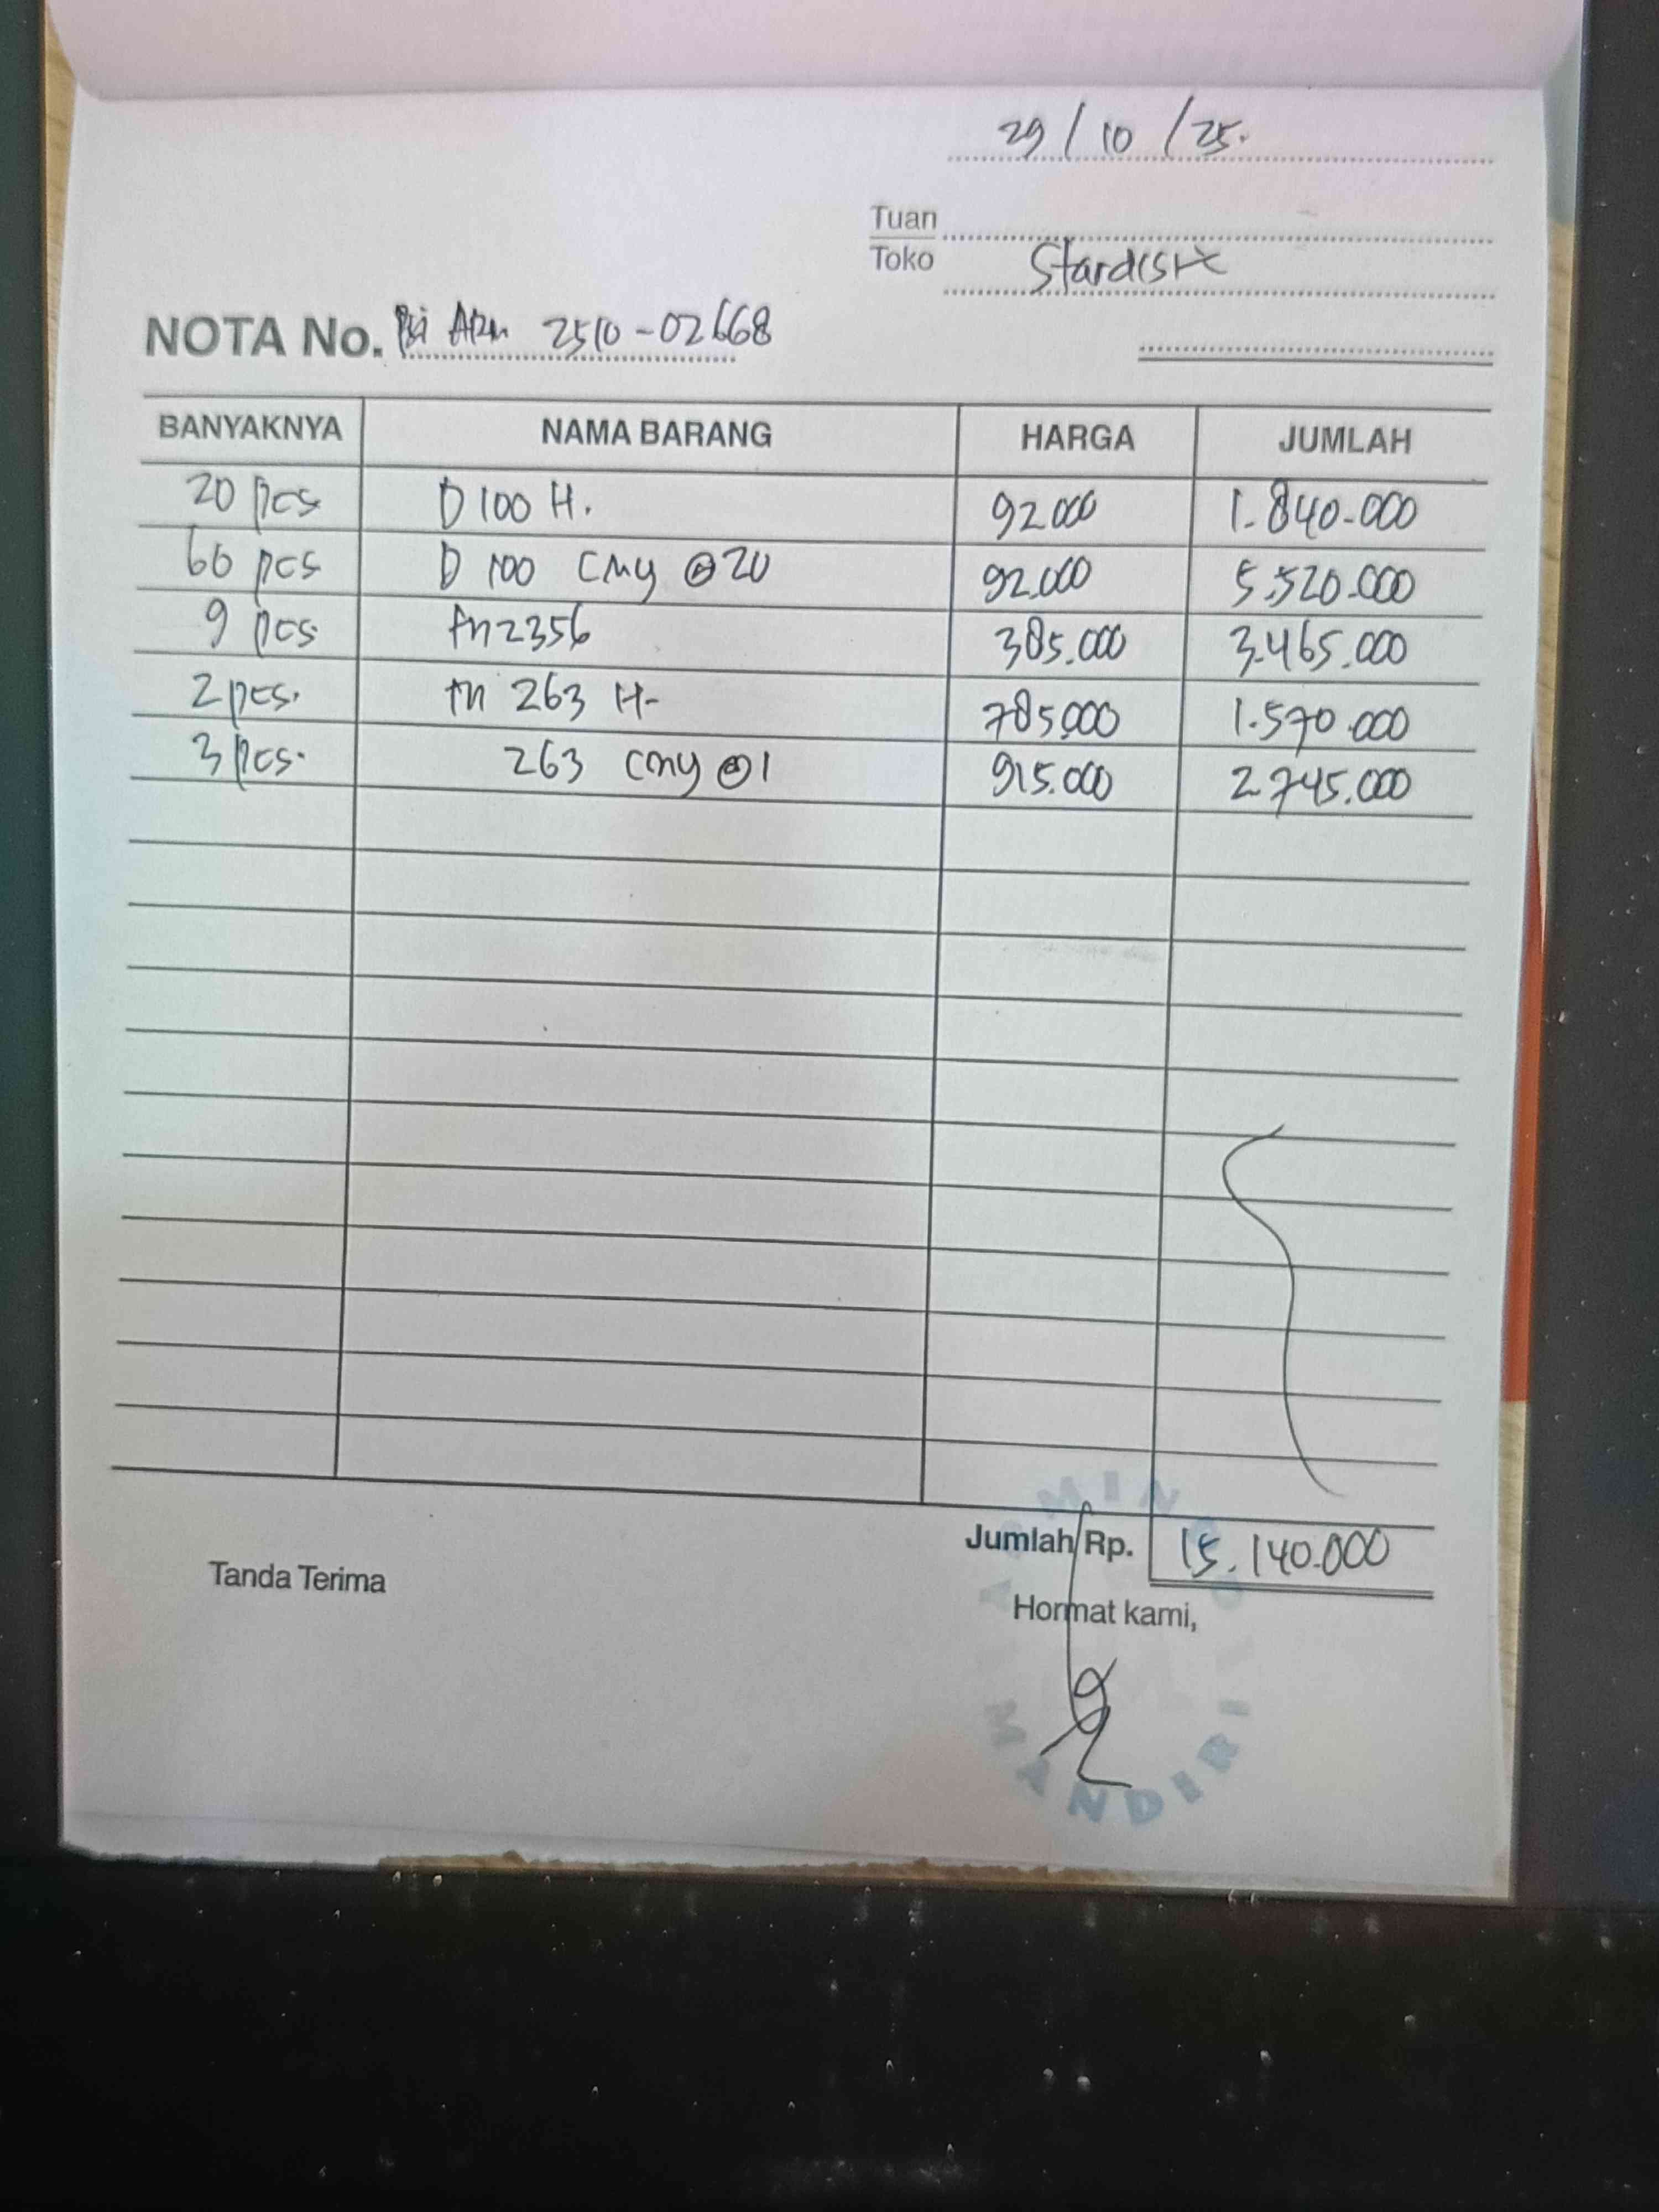 29/10/25.
Tuan
Toko Stardisk
NOTA No. 2510-02668
BANYAKNYA NAMA BARANG HARGA JUMLAH
20 pcs D 100 H. 92.000 1.840.000
60 pcs D 100 CMY @20 92.000 5.520.000
9 pcs tn2356 385.000 3.465.000
2 pcs. tn 263 H- 785.000 1.570.000
3 pcs. 263 cmy @1 915.000 2.745.000
Jumlah Rp. 15.140.000
Tanda Terima
Hormat kami,
MANDIRI